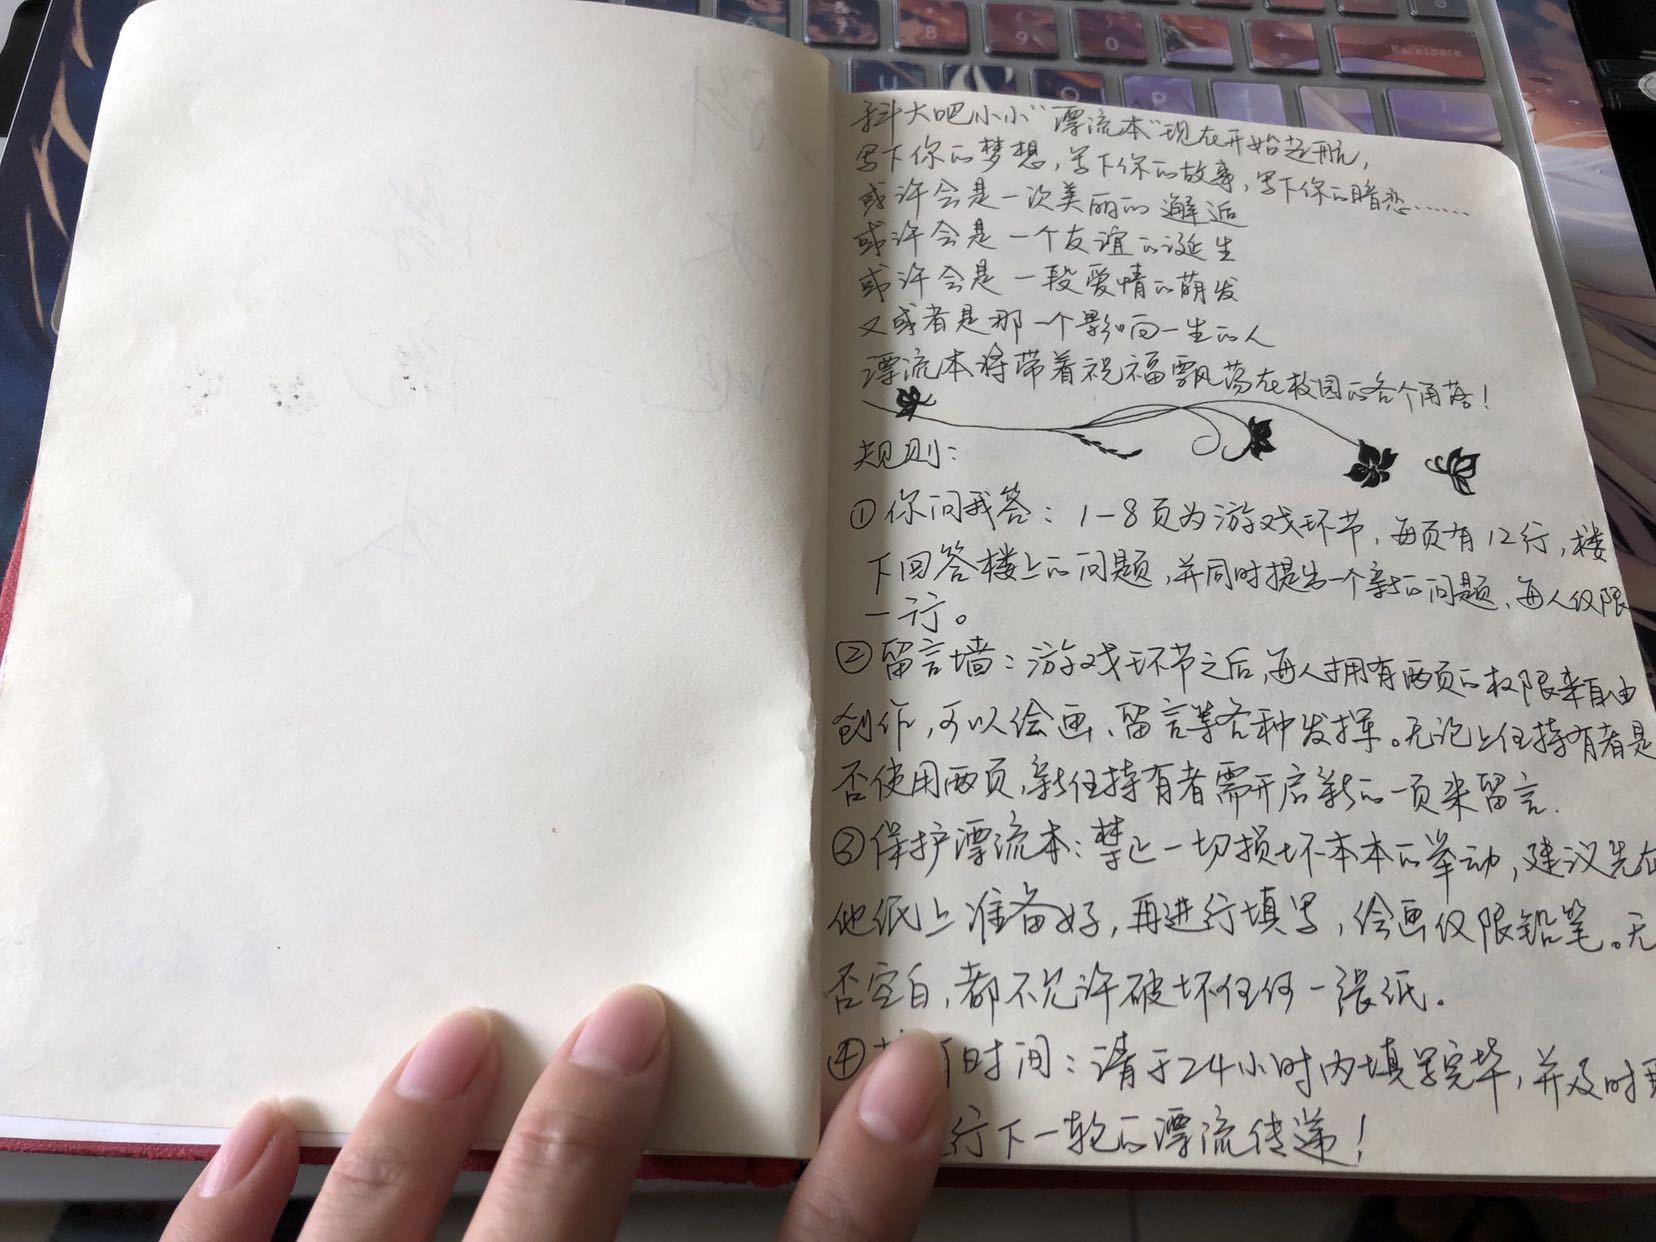 Backspace
8
9
0
U
O
P
科大吧小小“漂流本”现在开始起航,
写下你的梦想,写下你的故事,写下你的暗恋……
或许会是一次美丽的邂逅
或许会是一个友谊的诞生
或许会是一段爱情的萌发
又或者是那一个影响一生的人
漂流本将带着祝福飘荡在校园的各个角落!
规则:
①你问我答:1-8页为游戏环节,每页有12行,楼
下回答楼上的问题,并同时提出一个新的问题、每人仅限
一行。
②留言墙:游戏环节之后,每人拥有两页的权限来自由
创作,可以绘画、留言等各种发挥。无论上任持有者是
否使用两页,新任持有者需开启新的一页来留言.
③保护漂流本:禁止一切损坏本本的举动,建议先在
他纸上准备好,再进行填写,绘画仅限铅笔。无
否空白,都不允许破坏任何一张纸。
④时间:请于24小时内填写完毕,并及时
行下一轮的漂流传递!